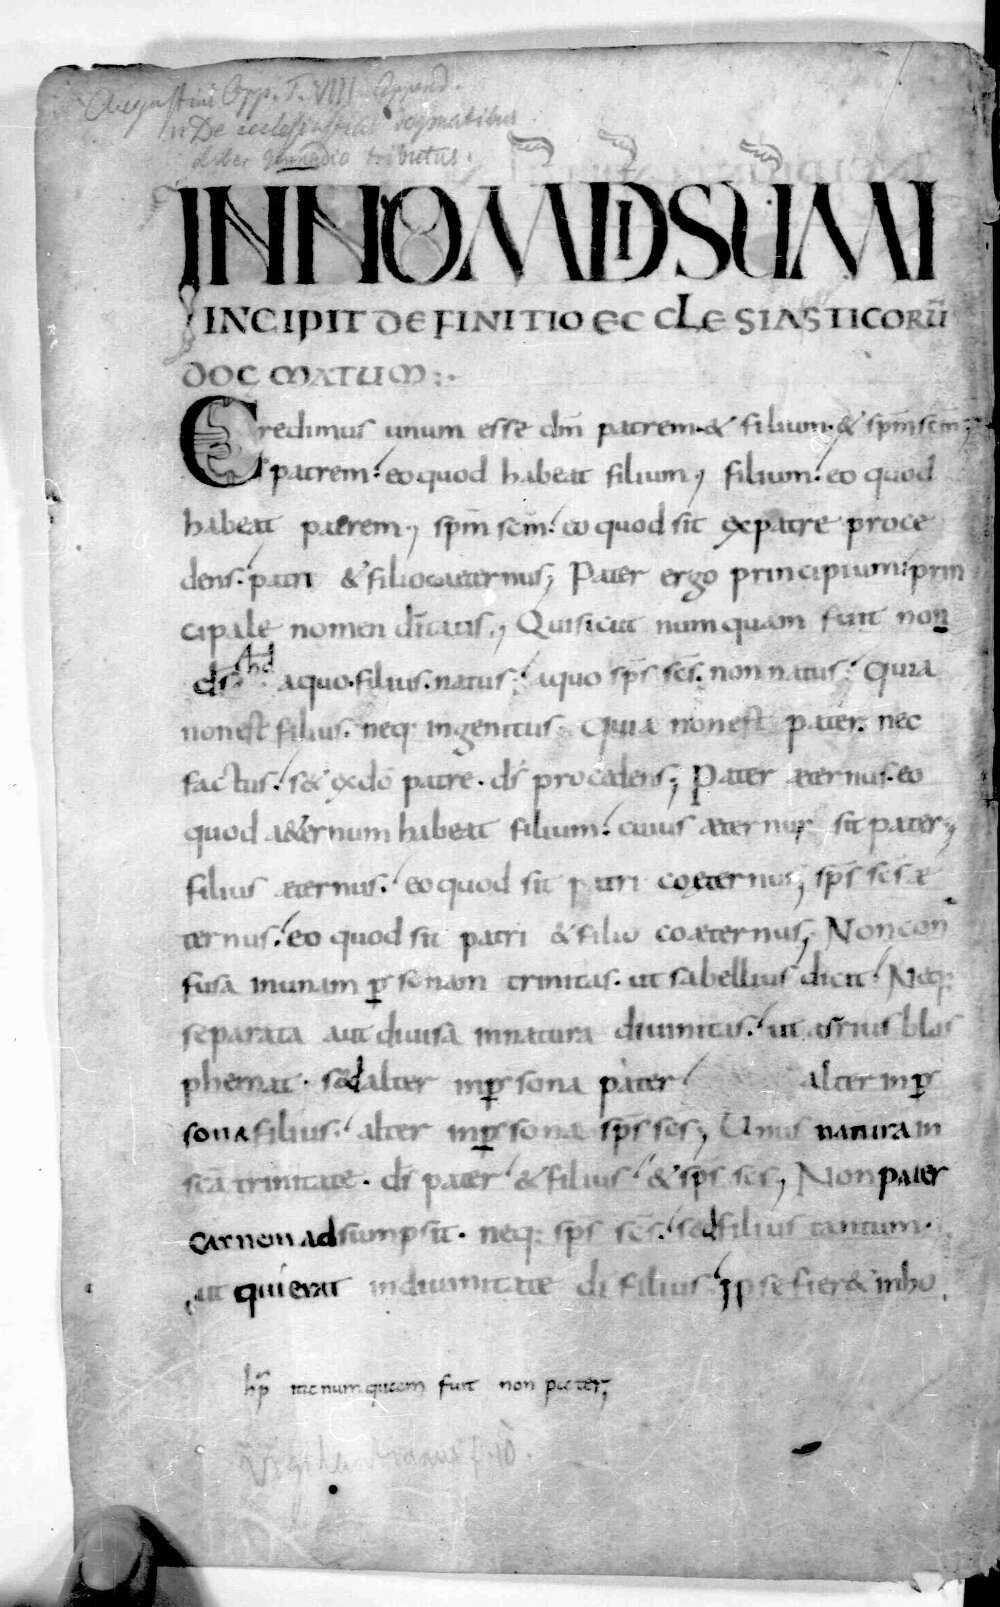 Augustini Opp. T. VIII Append.
De ecclesiasticis dogmatibus
liber Gennadio tributus.
IN NOM DI SUMI
INCIPIT DEFINITIO ECCLESIASTICORŪ
DOCMATUM:.
Credimus unum esse dm̄ patrem·& filium·& spm̄ scm̄;
patrem· eo quod habeat filium; filium· eo quod
habeat patrem; spm̄ scm̄· eo quod sit ex patre proce
dens· patri & filio coaeternus; Pater ergo principium· prin
cipale nomen dītatis; Qui sicut numquam fuit non
ds̄ hd a quo·filius·natus· a quo sps̄ scs̄· non natus· Quia
non est filius· neq· ingenitus· Quia non est pater· nec
factus· s& ex dō patre· ds̄ procedens; Pater æternus· eo
quod a&ernum habeat filium· cuius æternus sit pater;
filius æternus· eo quod sit patri coæternus; sps̄ scs̄ æ
ternus· eo quod sit patri & filio coæternus; Non con
fusa in unam p̱sonam trinitas· ut sabellius dicit· Neq·
separata aut diuisa in natura diuinitas· ut arrius blas
phemat· sed alter in p̱sona pater alter in p̱
sona filius· alter in p̱sona sps̄ scs̄; Unus natura in
scā trinitate· ds̄ pater & filius & sps̄ scs̄; Non pater
carnem adsumpsit· neq· sps̄ scs̄· sed filius tantum·
ut qui erat in diuinitate dī filius· ipse fier& in ho
hp̄ ita numquam fuit non pater;